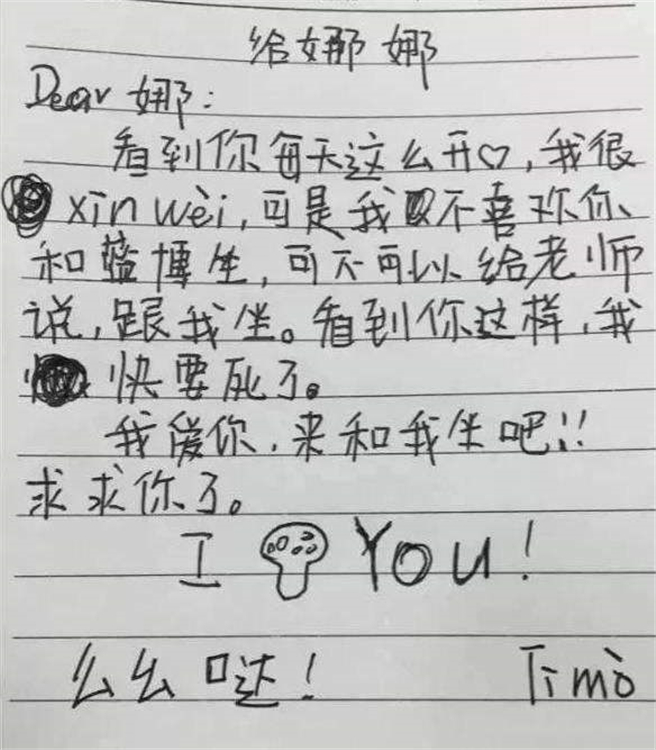 给娜娜
Dear 娜:
看到你每天这么开♡,我很
xīn wèi,可是我不喜欢你
和蓝博坐,可不可以给老师
说,跟我坐。看到你这样,我
快要死了。
我爱你,来和我坐吧!!
求求你了。
I You!
么么哒! Timo